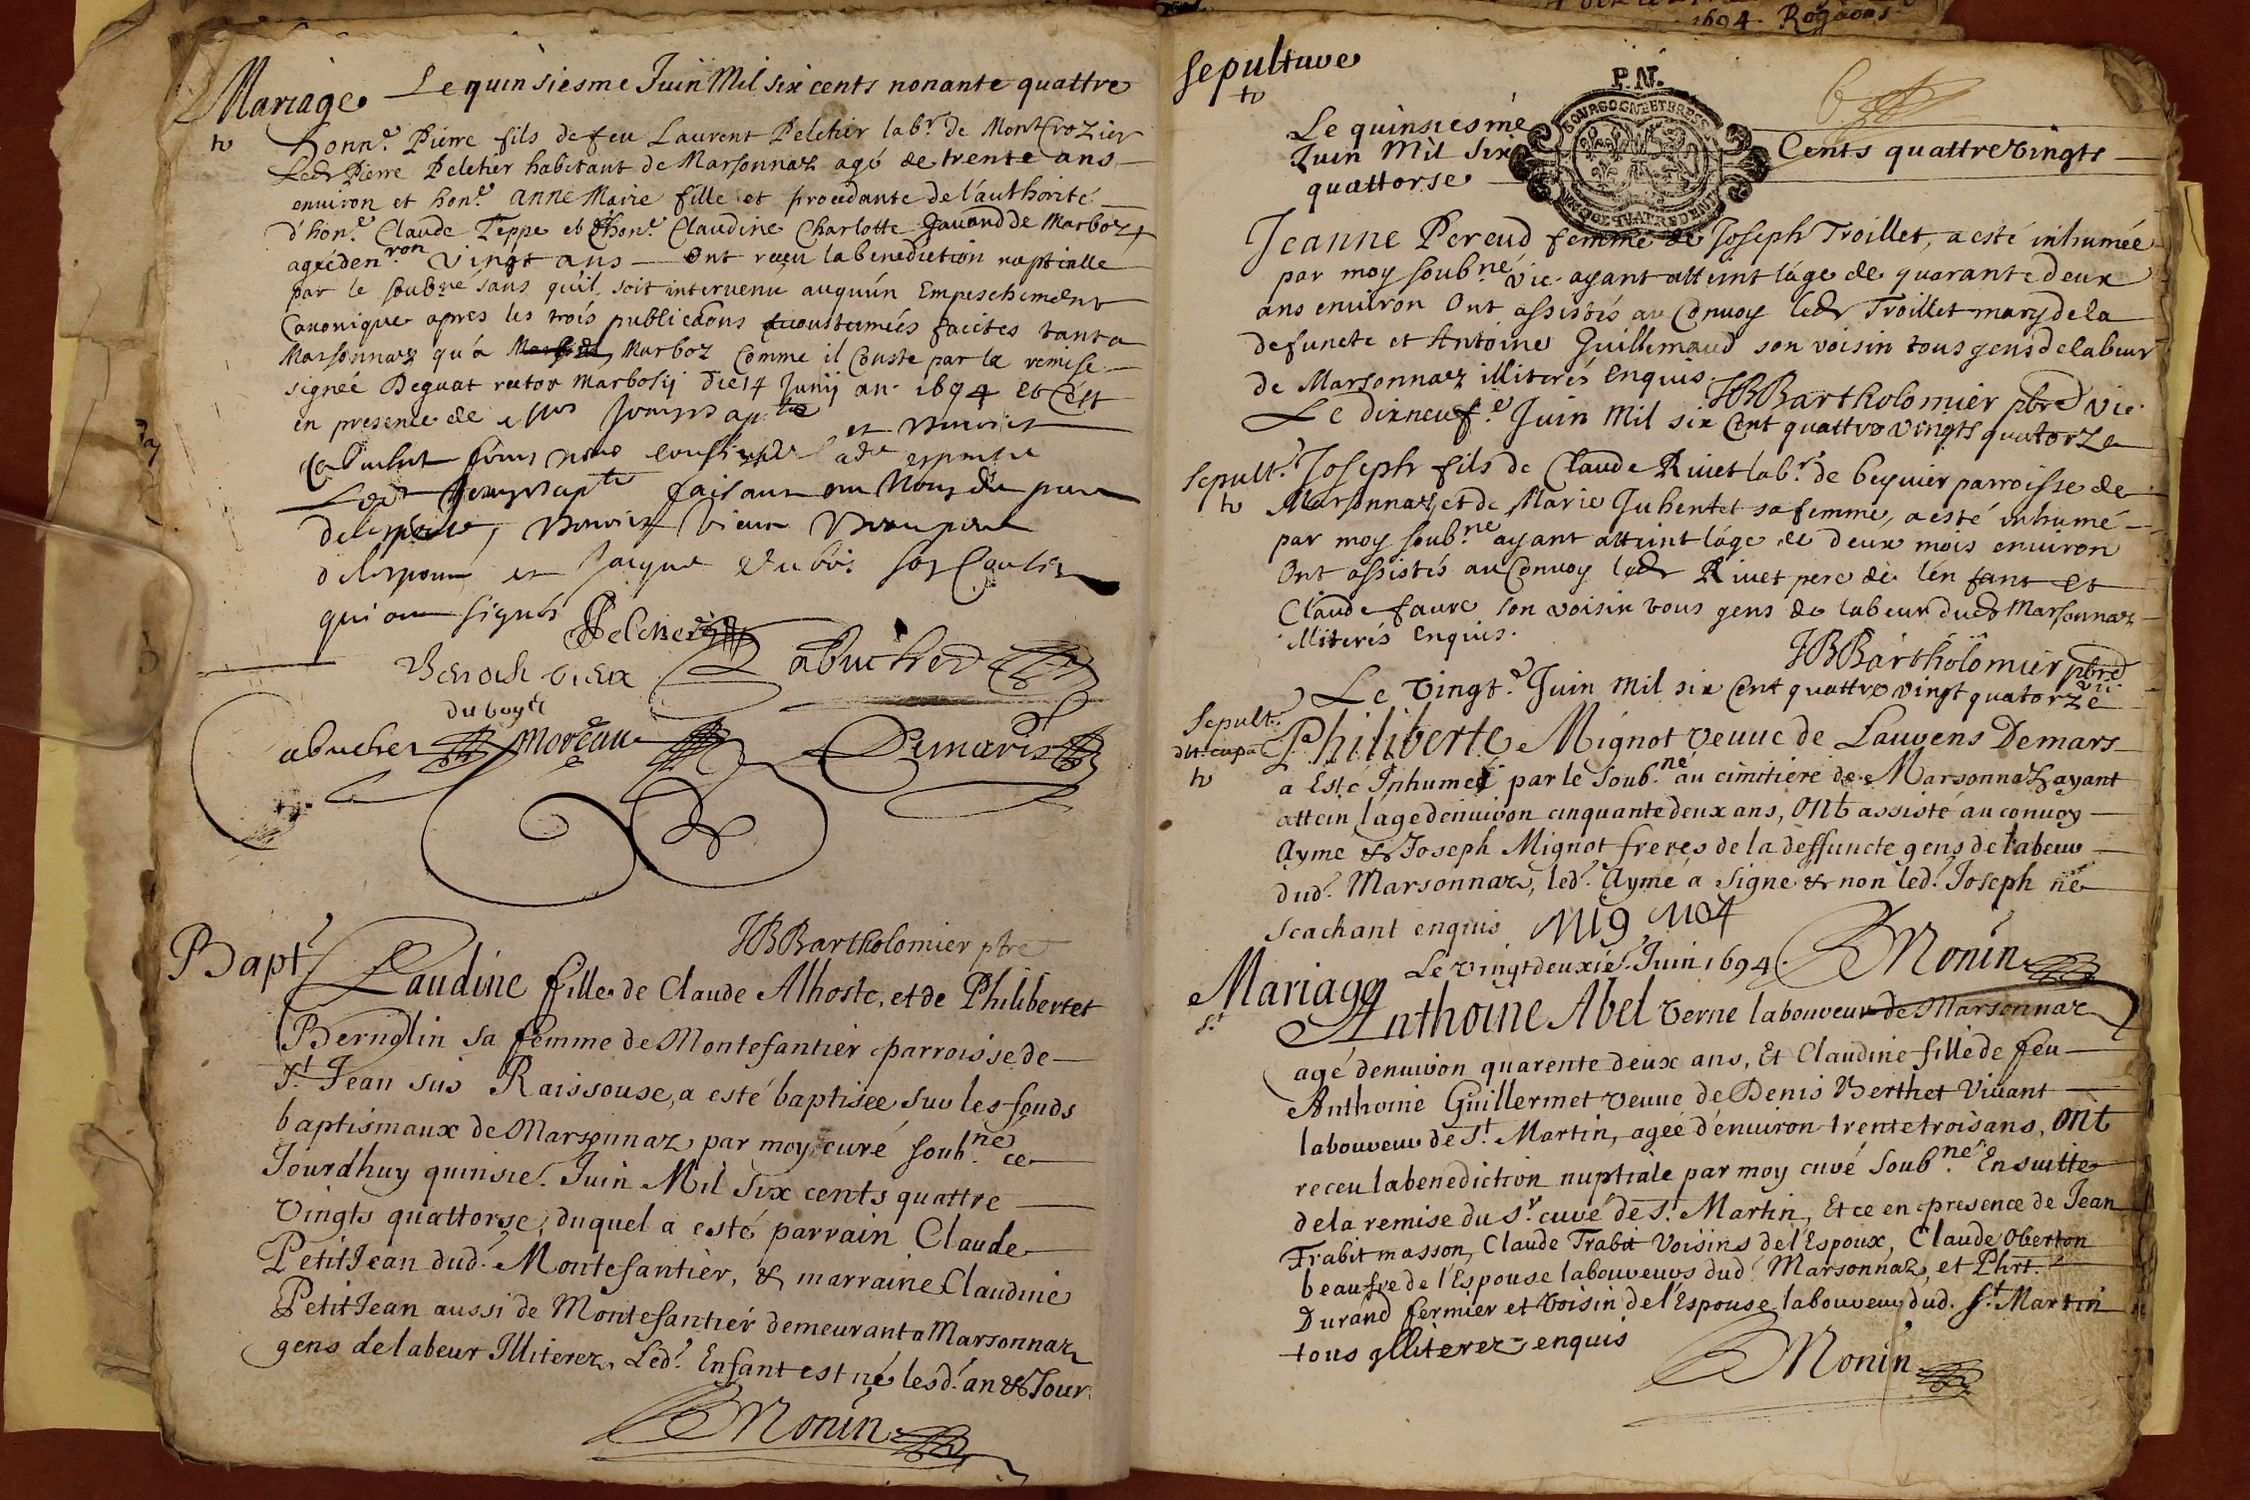 1694 Rogaons
Mariage Le quinsiesme Juin Mil six cents nonante quattre
honn.e Pierre fils de feu Laurent Peletier lab.r de MontCrozier
Led.r Pierre Peletier habitant de Marsonnaz agé de trente ans
enuiron et hon.e Anne Marie fille et procedante de l'authorité
d'hon.e Claude Teppe et d'hon.e Claudine Charlotte Gauand de Marboz
agée den.ron vingt ans ont receu la benediction nuptialle
par le soub.né sans qu'il soit interuenu augun Empeschement
Canonique apres les trois publicaons acoustumées faictes tant a
Marsonnaz qu'a Marboz comme il conste par la remise
signée Deguat rector Marbosij die 14 Junij an. 1694 et c'est
en presence de
et Benoist
Led.r faisant en
de l'espouse, Benoist vieux
de l'espoux et Jacque Dubois son Cousin
qui ont signés
Peletier
Benoist vieux Labucher
du boys
Labucher Moreau Demaris
JBBartholomier ptre
Bapt. Claudine fille de Claude Alhoste, et de Philibertet
Berndlin sa femme de Montefantier parroisse de
S.t Jean sus Raissouse, a esté baptisée sur les fonds
baptismaux de Marsonnaz par moy curé soub.né ce
Jourdhuy quinsie. Juin Mil six cents quattre
vingts quattorse, duquel a esté parrain Claude
PetitJean dud. Montefantier, & marraine Claudine
PetitJean aussi de Montefantier demeurant a Marsonnaz
gens de labeur Illiterez, Led.t Enfant est né lesd. an & Jour.
Monin
sepulture
P.N.
BOURGOGNE ET BRESSE
Le quinsiesme
Juin Mil six Cents quattre vingts
quattorse
Jeanne Pereud femme de Joseph Troillet, a esté inhumée
par moy soub.né vic. ayant atteint lâge de quarante deux
ans enuiron Ont assistés au Conuoy led.r Troillet mary de la
defuncte et Antoine Guillemaud son voisin tous gens de labeur
de Marsonnaz illiterés enquis.
JBBartholomier pbre vic.
Le dixneuf.e Juin Mil six Cent quattre vingts quatorze
sepult.e Joseph fils de Claude Riuet lab.r de beyuier parroisse de
Marsonnaz et de Marie Juhentet sa femme, a esté inhumé
par moy soub.né ayant atteint lâge de deux mois enuiron
Ont assistés au Conuoy led.r Riuet pere de l'enfant et
Claude faure son voisin tous gens de labeur dud.r Marsonnaz
illiterés enquis.
JBBartholomier pbre
vic.
Le vingt.e Juin Mil six Cent quattre vingt quatorze
sepult.e
Philiberte Mignot veuue de Laurens Demars
a Esté Inhumée par le soub.né au cimitiere de Marsonnaz ayant
attein l'age denuiron cinquante deux ans, Ont assisté au conuoy
Ayme & Joseph Mignot freres de la deffuncte gens de labeur
dud. Marsonnaz, led. Aymé a signé & non led. Joseph ne
scachant enquis Mignot
Monin
Mariage Le vingt deuxie. Juin 1694.
Anthoine Abel verne laboureur de Marsonnaz
agé denuiron quarente deux ans, Et Claudine fille de feu
Anthoine Guillermet veuue de Denis Berthet viuant
laboureur de S.t Martin, agée d'enuiron trente trois ans, ont
receu la benediction nuptiale par moy curé soub.né Ensuitte
de la remise du S.r curé de S.t Martin, Et ce en presence de Jean
Trabit masson, Claude Trabit voisins de l'Espoux, Claude Oberton
beaufre de l'Espouse laboureurs dud. Marsonnaz, et Phrt.
Durand fermier et voisin de l'Espouse laboureur dud. S.t Martin
tous Illiterez enquis
Monin